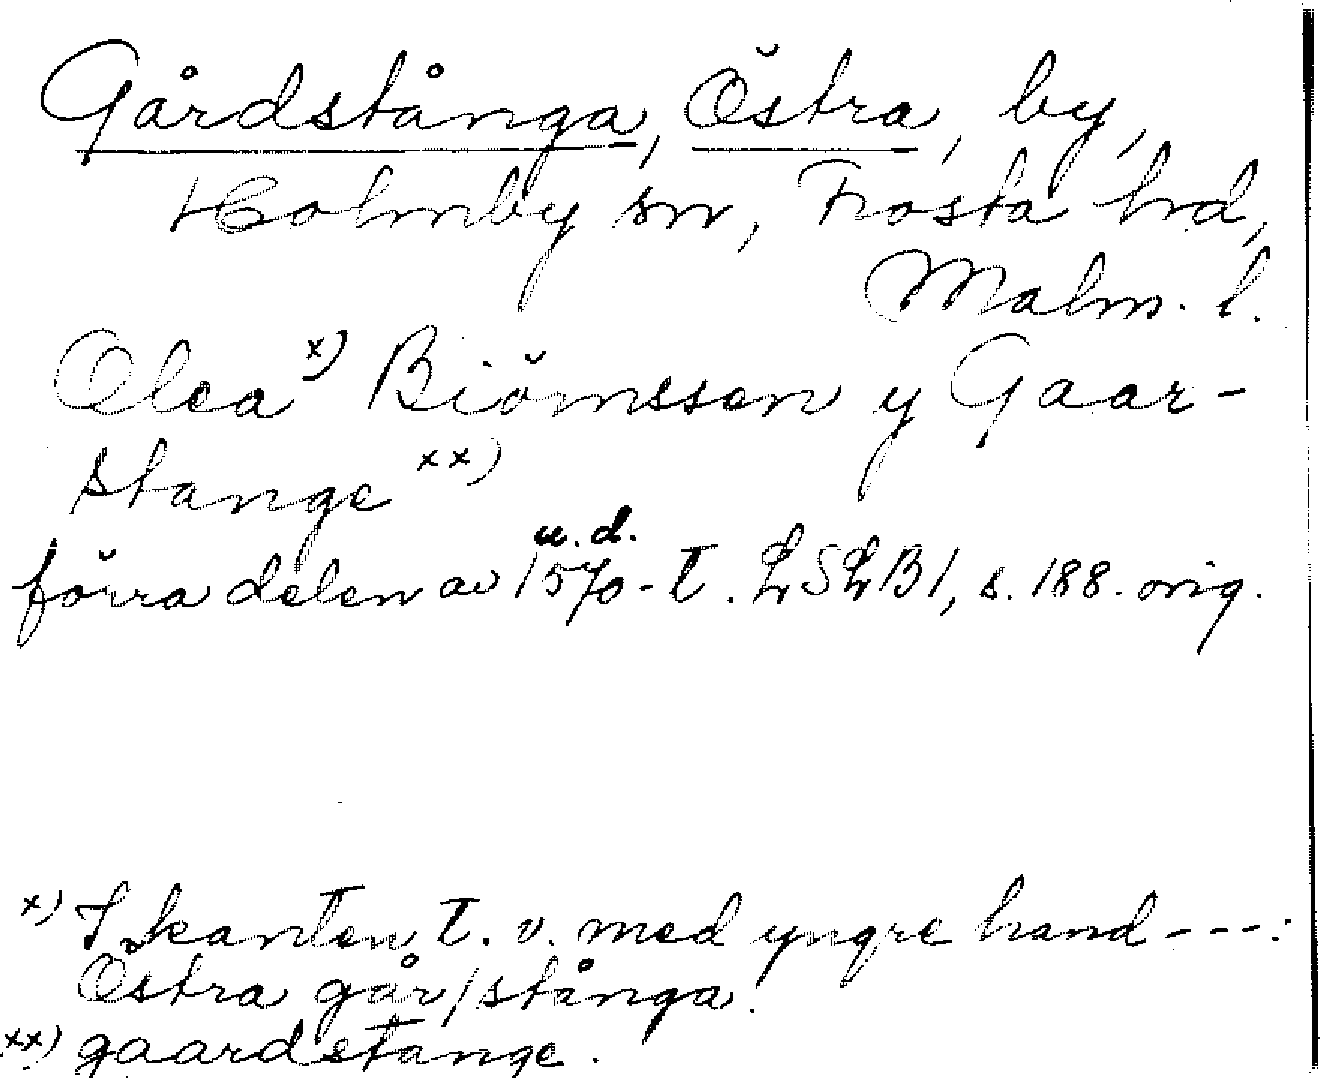 Gårdstånga, Östra, by,
Holmby sn, Frosta hd,
Malm. l.
Olea x) Biörnssen y Gaar-
stange xx)
u. d.
förra delen av 1570-t. LSLB1, s. 188. orig.
x) I kanten t. v. med yngre hand ---:
Östra går/stånga.
xx) gaardstange.